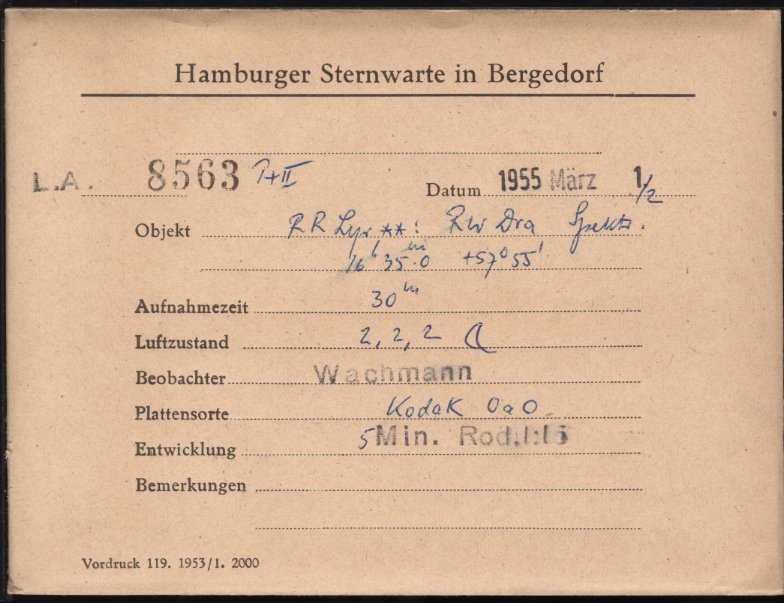 Hamburger Sternwarte in Bergedorf
L.A. 8563 I+II Datum 1955 März 1/2
Objekt RR Lyr **: RW Dra Spektr.
16h 35.m0 +57° 55'
Aufnahmezeit 30m
Luftzustand 2, 2, 2
Beobachter Wachmann
Plattensorte Kodak OaO
Entwicklung 5 Min. Rod. 1:15
Bemerkungen
Vordruck 119. 1953/1. 2000